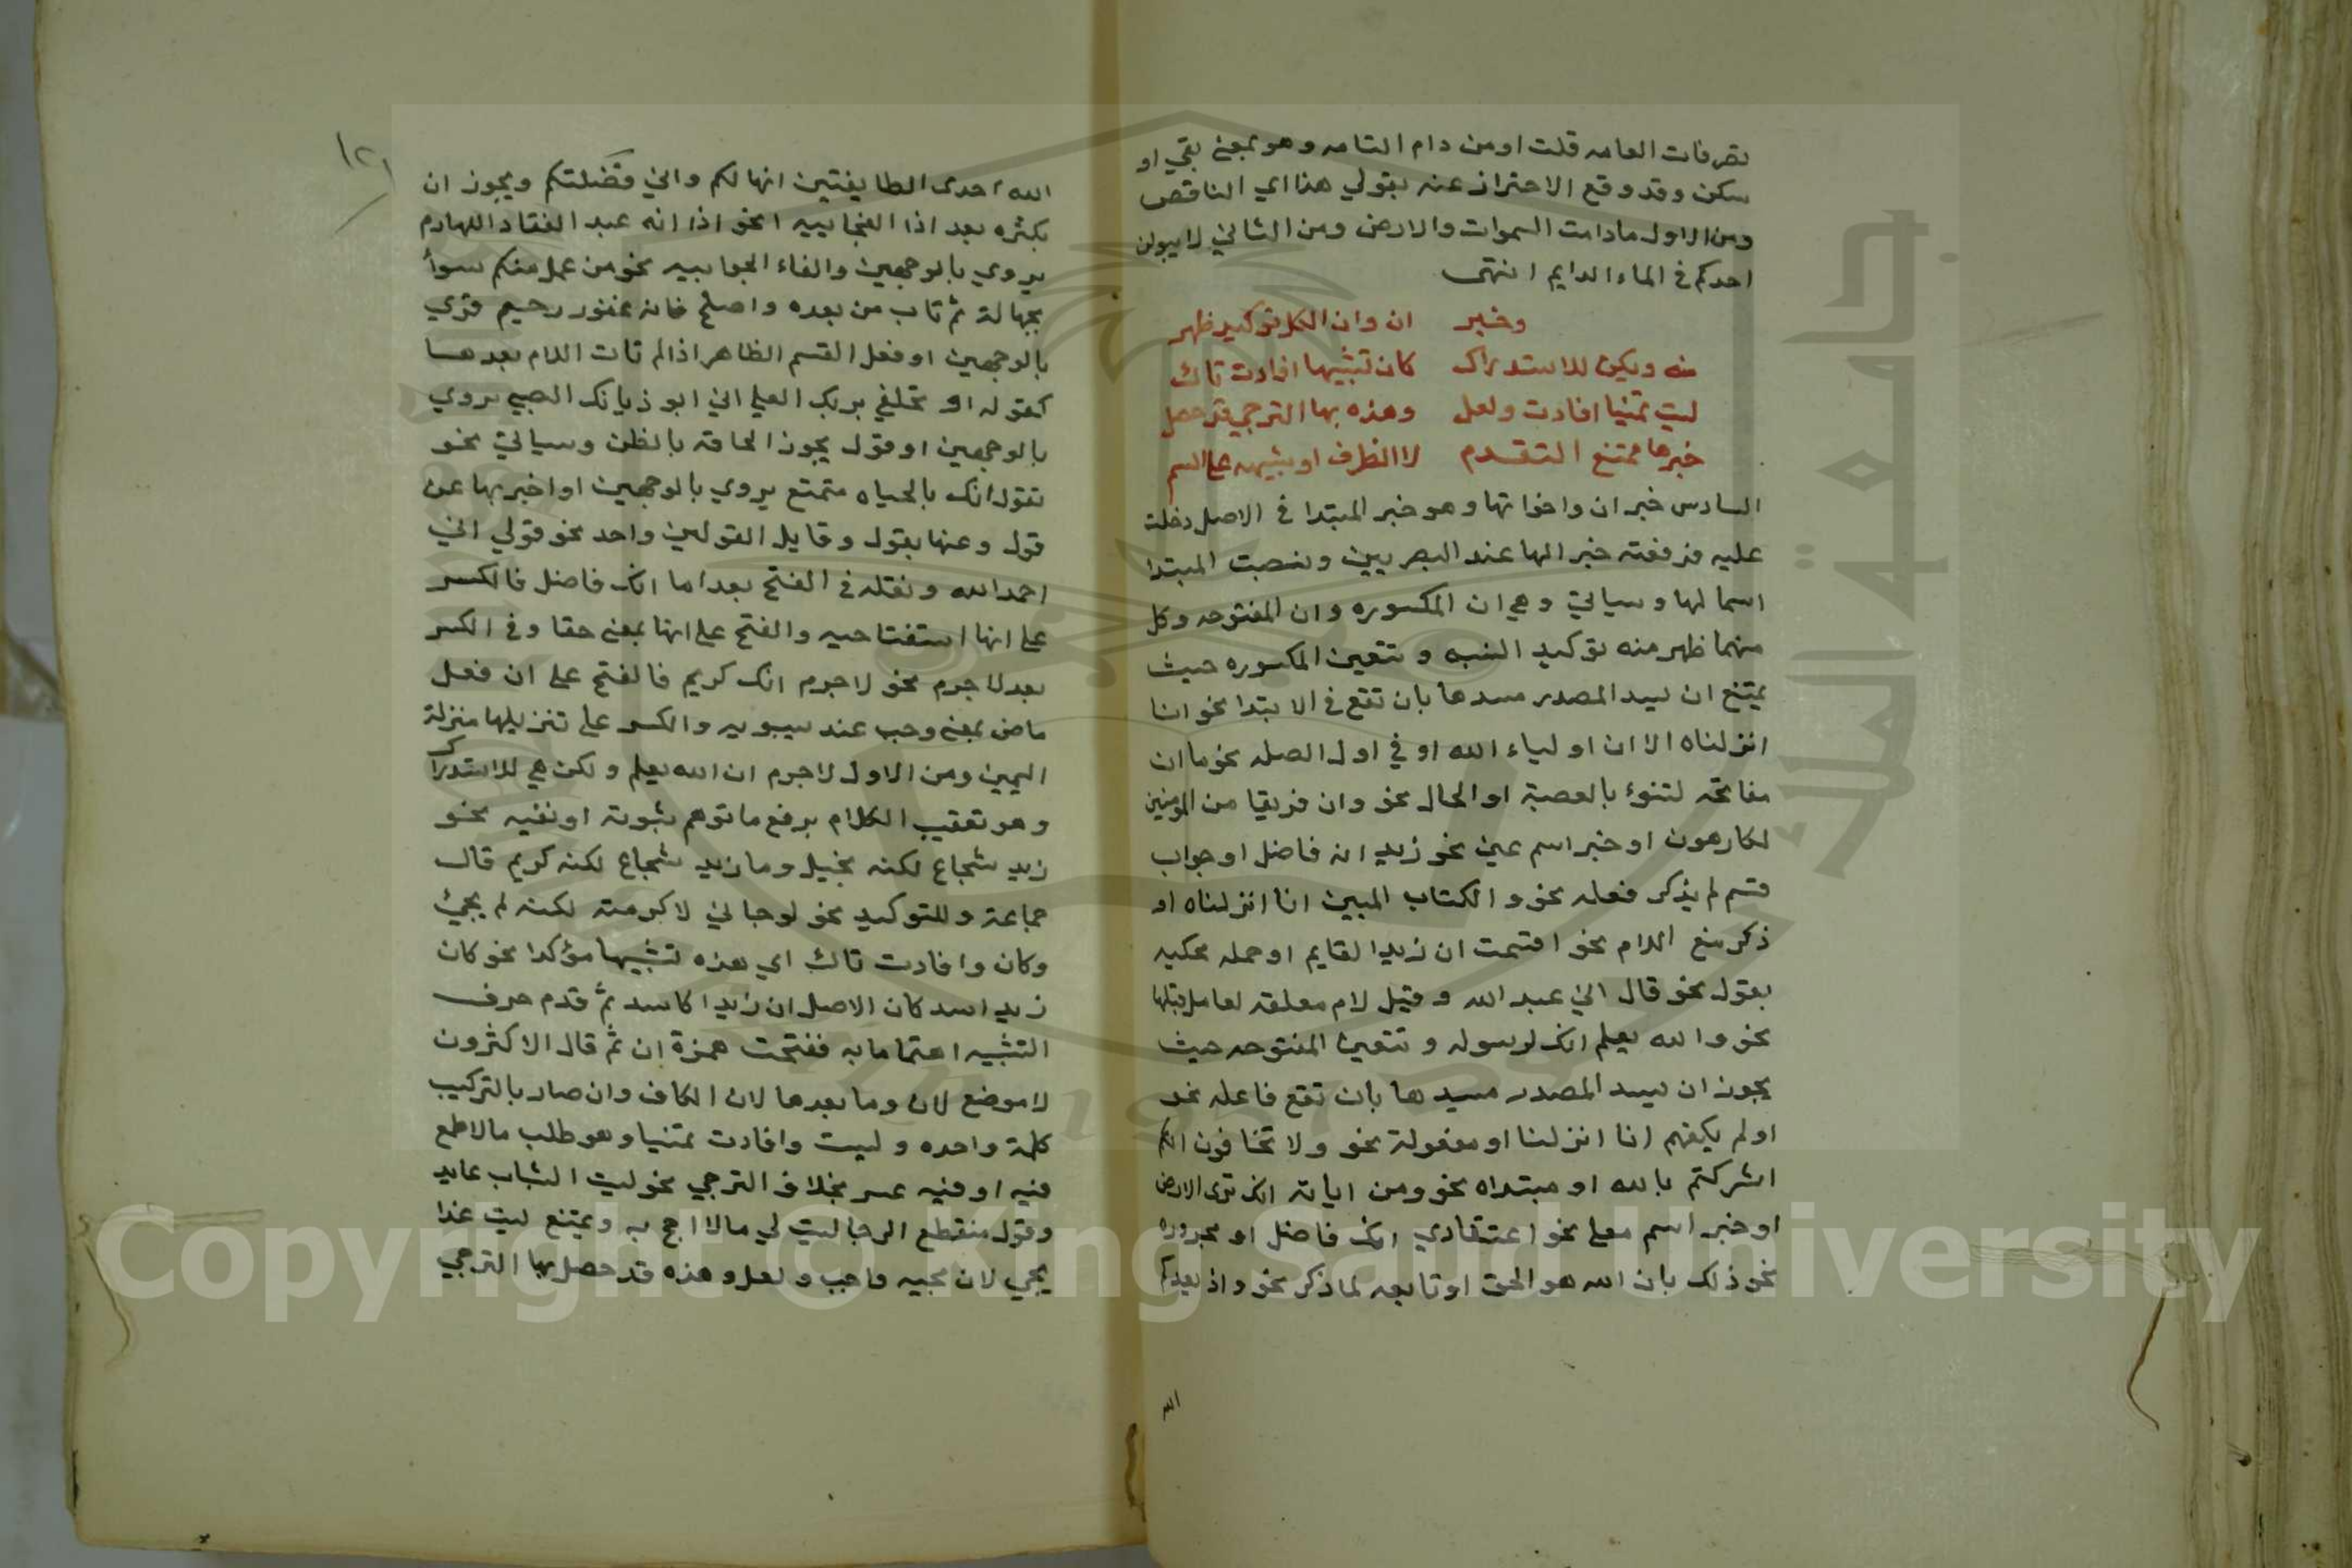 تصرفات العامه قلت او من دام التامه وهو بمعنى بقي او
سكن وقد وقع الاحتراز عنه بقولي هذا اي الناقص
ومن الاول مادامت السموات والارض ومن الثاني لا يبولن
احدكم في الماء الدايم انتهى
وخبر ان وان الكل توكيد ظهر
منه ولكن للاستدراك كان تشبيها افادت تاك
ليت تمنيا افادت ولعل وهذه بها الترجي قد حصل
خبرها ممتنع التقدم لا الظرف او شبيهه على اسم
السادس خبر ان واخواتها وهو خبر المبتدا في الاصل دخلت
عليه فرفعته خبرا لها عند البصريين ونصبت المبتدا
اسما لها وسياتي وهي ان المكسوره وان المفتوحه وكل
منهما ظهر منه توكيد النسبه وتتعين المكسوره حيث
يمتنع ان يسد المصدر مسدها بان تقع في الابتدا نحو انا
انزلناه الا ان اولياء الله او في اول الصله نحو ما ان
مفاتحه لتنوء بالعصبة او الحال نحو وان فريقا من المومنين
لكارهون او خبر اسم عين نحو زيد انه فاضل او جواب
قسم لم يذكر فعله نحو والكتاب المبين انا انزلناه او
ذكر مع اللام نحو اقسمت ان زيدا لقايم او جمله محكيه
بقول نحو قال اني عبد الله وقبل لام معلقه لعامل قبلها
نحو والله يعلم انك لرسوله وتتعين المفتوحه حيث
يجوز ان يسد المصدر مسدها بان تقع فاعله نحو
اولم يكفهم انا انزلنا او مفعولة نحو ولا تخافون انكم
اشركتم بالله او مبتداه نحو ومن اياته انك ترى الارض
او خبر اسم معنى نحو اعتقادي انك فاضل او مجروره
نحو ذلك بان الله هو الحق او تابعه لما ذكر نحو واذ يعدكم
الله
١٢١
الله احدى الطايفتين انها لكم واني فضلتكم ويجوز ان
بكثره بعد اذا الفجاييه نحو اذا انه عبد القفا واللهازم
يروي بالوجهين والفاء الجوابيه نحو من عمل منكم سوأ
بجهالة ثم تاب من بعده واصلح فانه غفور رحيم قري
بالوجهين او فعل القسم الظاهر اذا لم تات اللام بعدها
كقوله او تحلفي بربك العلي اني ابو ذيالك الصبي يروي
بالوجهين او قول يجوز الحاقه بالظن وسياتي نحو
تقول انك بالحياه متمتع يروي بالوجهين او اخبر بها عن
قول وعنها بقول وقايل القولين واحد نحو قولي اني
احمد الله ونقله في الفتح بعد اما انك فاضل فالكسر
على انها استفتاحيه والفتح على انها بمعنى حقا وفي الكسر
بعد لا جرم نحو لا جرم انك كريم فالفتح على ان فعل
ماض بمعنى وجب عند سيبويه والكسر على تنزيلها منزلة
اليمين ومن الاول لاجرم ان الله يعلم ولكن هي للاستدراك
وهو تعقيب الكلام برفع ما توهم ثبوته او نفيه نحو
زيد شجاع لكنه بخيل وما زيد شجاع لكنه كريم قال
جماعة وللتوكيد نحو لو جاني لاكرمته لكنه لم يجئ
وكان وافادت تاك اي هذه تشبيها مؤكدا نحو كان
زيدا اسد كان الاصل ان زيدا كاسد ثم قدم حرف
التشبيه اهتماما به ففتحت همزة ان ثم قال الاكثرون
لا موضع لان وما بعدها لان الكاف وان صار بالتركيب
كلمة واحده وليت وافادت تمنيا وهو طلب ما لا طمع
فيه او فيه عسر بخلاف الترجي نحو ليت الشباب عايد
وقول منقطع الرجا ليت لي مالا احج به ويمتنع ليت غدا
يجي لان مجيه واجب ولعل وهذه قد حصل بها الترجي
جامعة الملك
Copyright © King Saud University